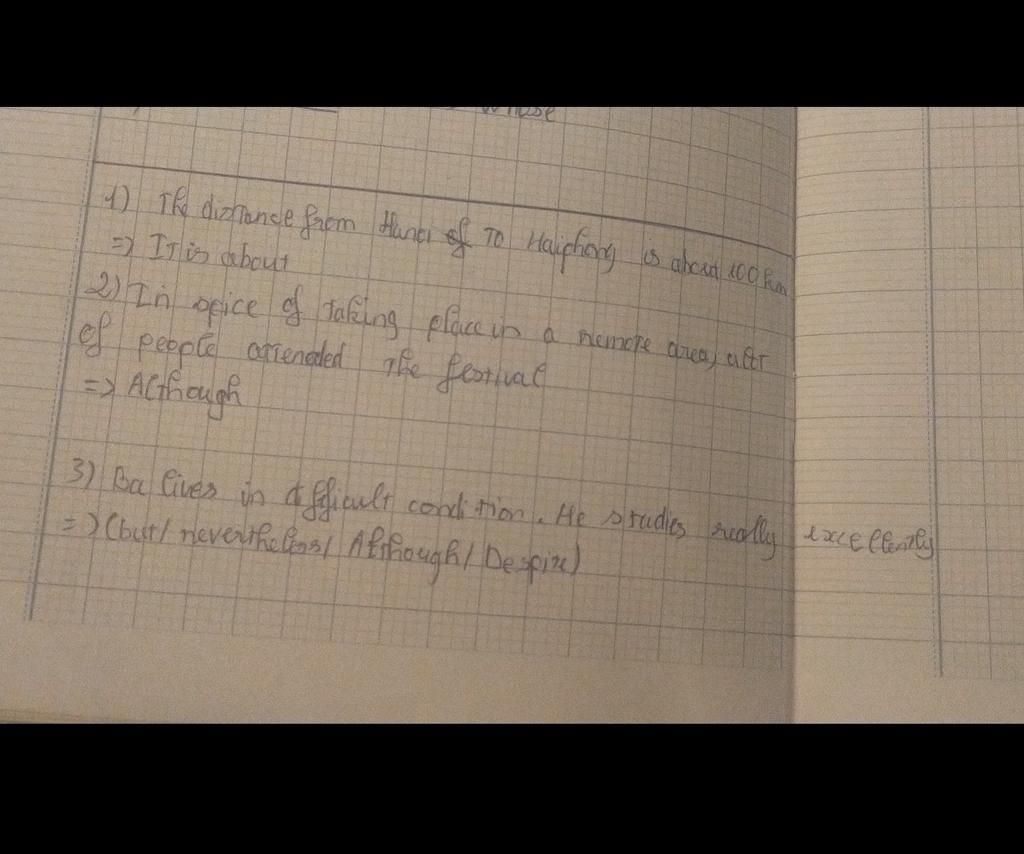 whose
1) The distance from Hanoi of To Haiphong is about 100 km
=> IT is about
2) In spice of Taking place in a remore area, a lot
of people attended The festival
=> Although
3) Ba lives in difficult condition. He studies really excellently
=> (but/ nevertheless/ Although/ Despite)